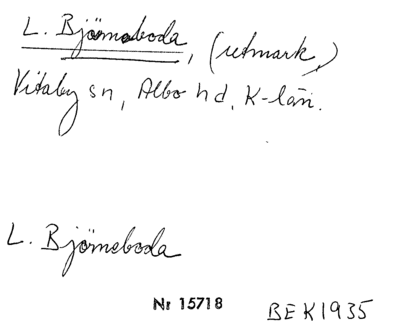 L. Björneboda, (utmark)
Vitaby sn, Albo hd, K-län.
L. Björneboda
Nr 15718 BEK1935